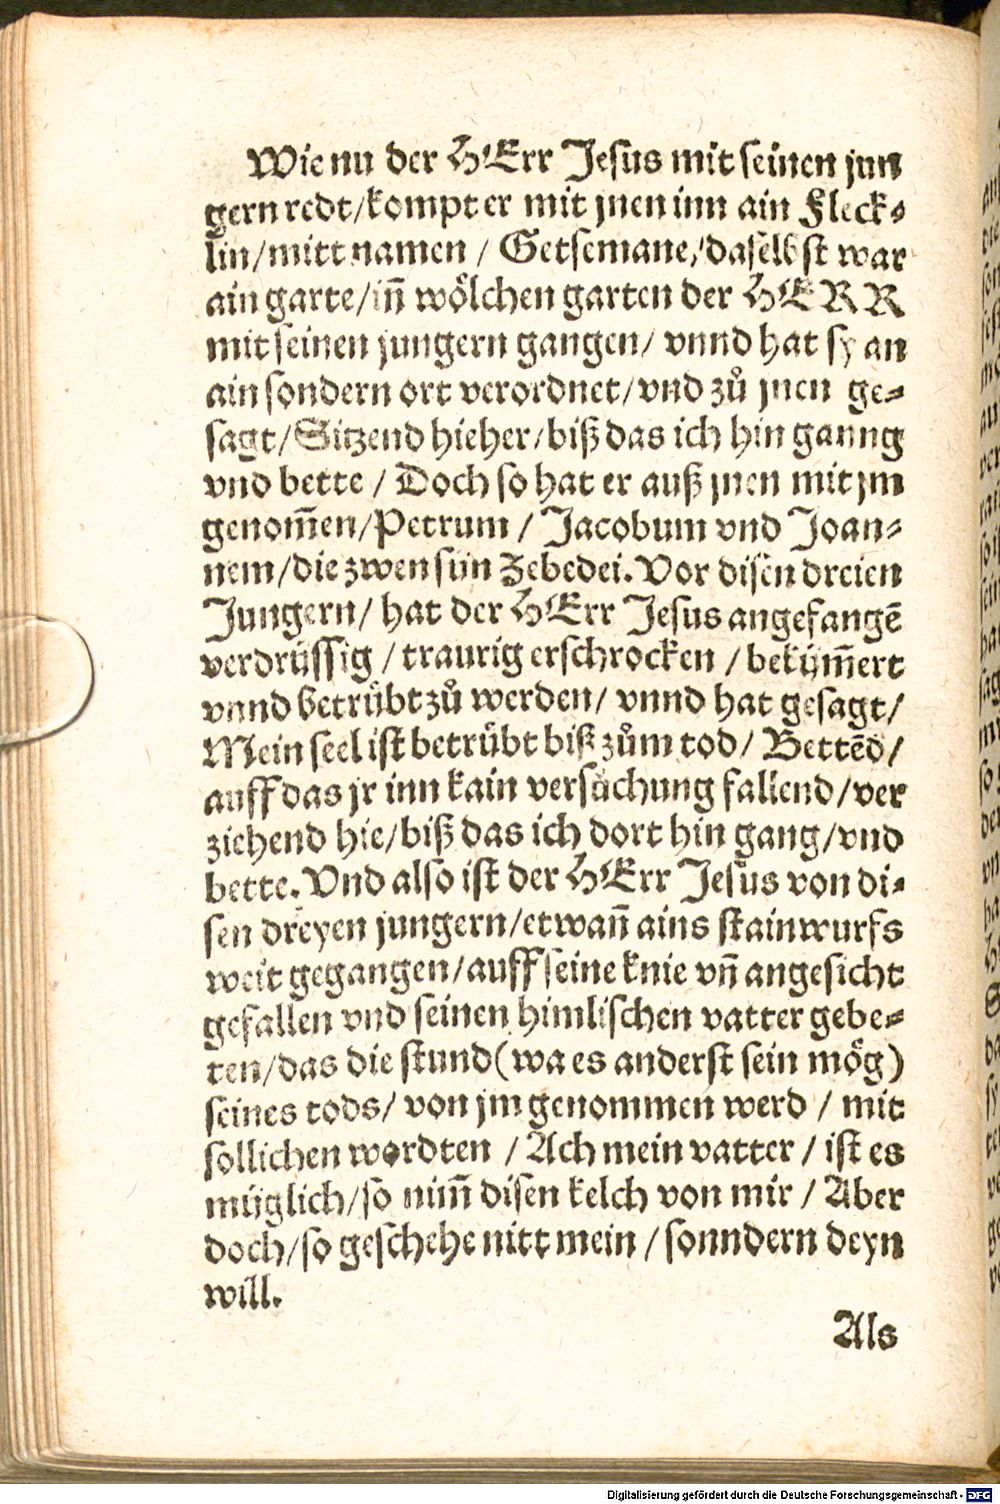 Wie nu der HErr Jesus mit seinen jun
gern redt/kompt er mit jnen inn ain Fleck⸗
lin/mitt namen / Getsemane/daselbst war
ain garte/iñ wölchen garten der HERR
mit seinen jungern gangen/ vnnd hat sy an
ain sondern ort verordnet/vnd zů jnen ge⸗
sagt/Sitzend hieher/biß das ich hin ganng
vnd bette / Doch so hat er auß jnen mit jm
genom̃en/Petrum / Jacobum vnd Joan⸗
nem/die zwen sün Zebedei. Vor disen dreien
Jungern/ hat der HErr Jesus angefangẽ
verdrüssig / traurig erschrocken / beküm̃ert
vnnd betrübt zů werden/ vnnd hat gesagt/
Mein seel ist betrübt biß zům tod/ Bettẽd/
auff das jr inn kain versůchung fallend/ver
ziehend hie/biß das ich dort hin gang/vnd
bette. Vnd also ist der HErr Jesus von di⸗
sen dreyen jungern/etwañ ains stainwurfs
weit gegangen/auff seine knie vñ angesicht
gefallen vnd seinen himlischen vatter gebe⸗
ten/das die stund(wa es anderst sein mög)
seines tods/ von jm genommen werd / mit
sollichen wordten / Ach mein vatter / ist es
müglich/so nim̃ disen kelch von mir / Aber
doch/so geschehe nitt mein / sonndern deyn
will.
Als
Digitalisierung gefördert durch die Deutsche Forschungsgemeinschaft - DFG